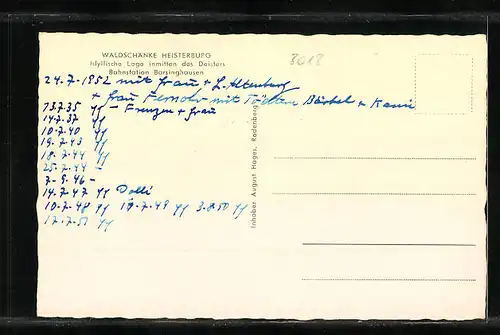 WALDSCHÄNKE HEISTERBURG
Idyllische Lage inmitten des Deisters
Bahnstation Barsinghausen
8018
24.7.1952 mit Frau + L. Altenberg
+ Frau mit Bärbel +
- Frenzen + Frau
14.7.37 "
10.7.40 "
19.7.43 "
18.7.44 "
25.7.44 -
7.9.46 -
14.7.47 " Dolli
10.7.48 " 19.7.49 " 3.8.50 "
17.7.51 "
Inhaber August Hages, Rodenberg